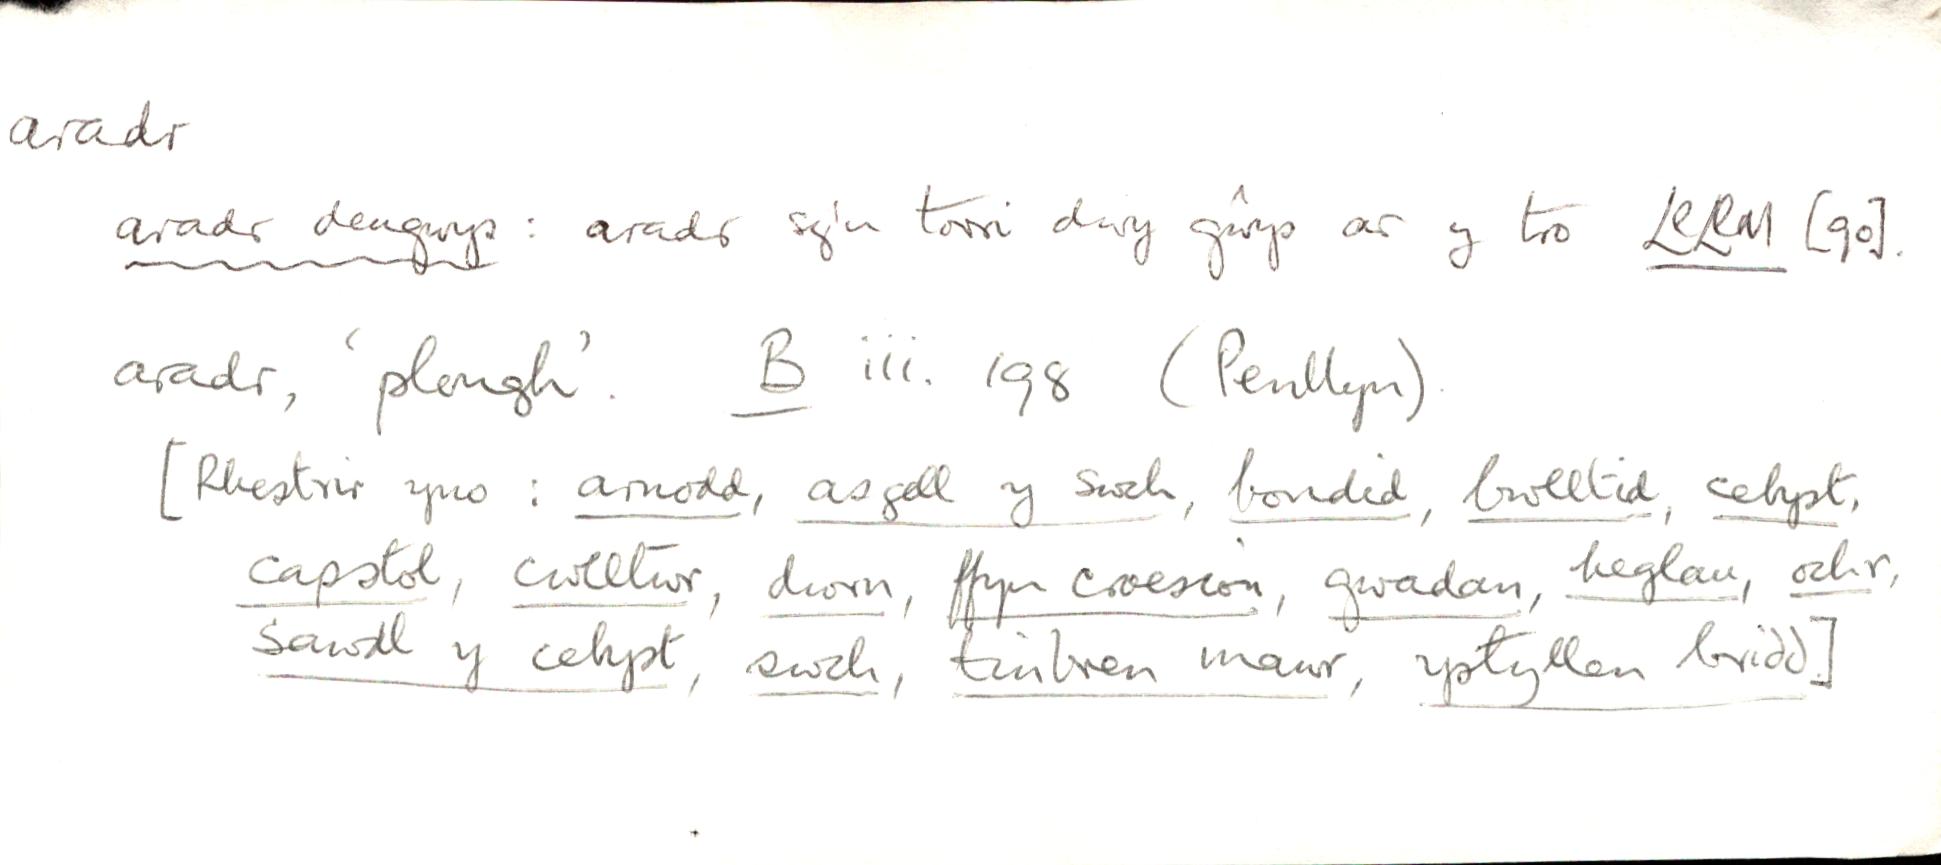 aradr
aradr deugwys: aradr sy'n torri dwy gŵys ar y tro LlLlM [90].
aradr, 'plough'. B iii. 198 (Penllyn).
[Rhestrir yno: arnodd, asgell y swch, bondid, bwlltid, cebyst,
capstol, cwlltwr, dwrn, ffyn croesion, gwadan, heglau, ochr,
sawdl y cebyst, swch, tinbren mawr, ystyllen bridd]